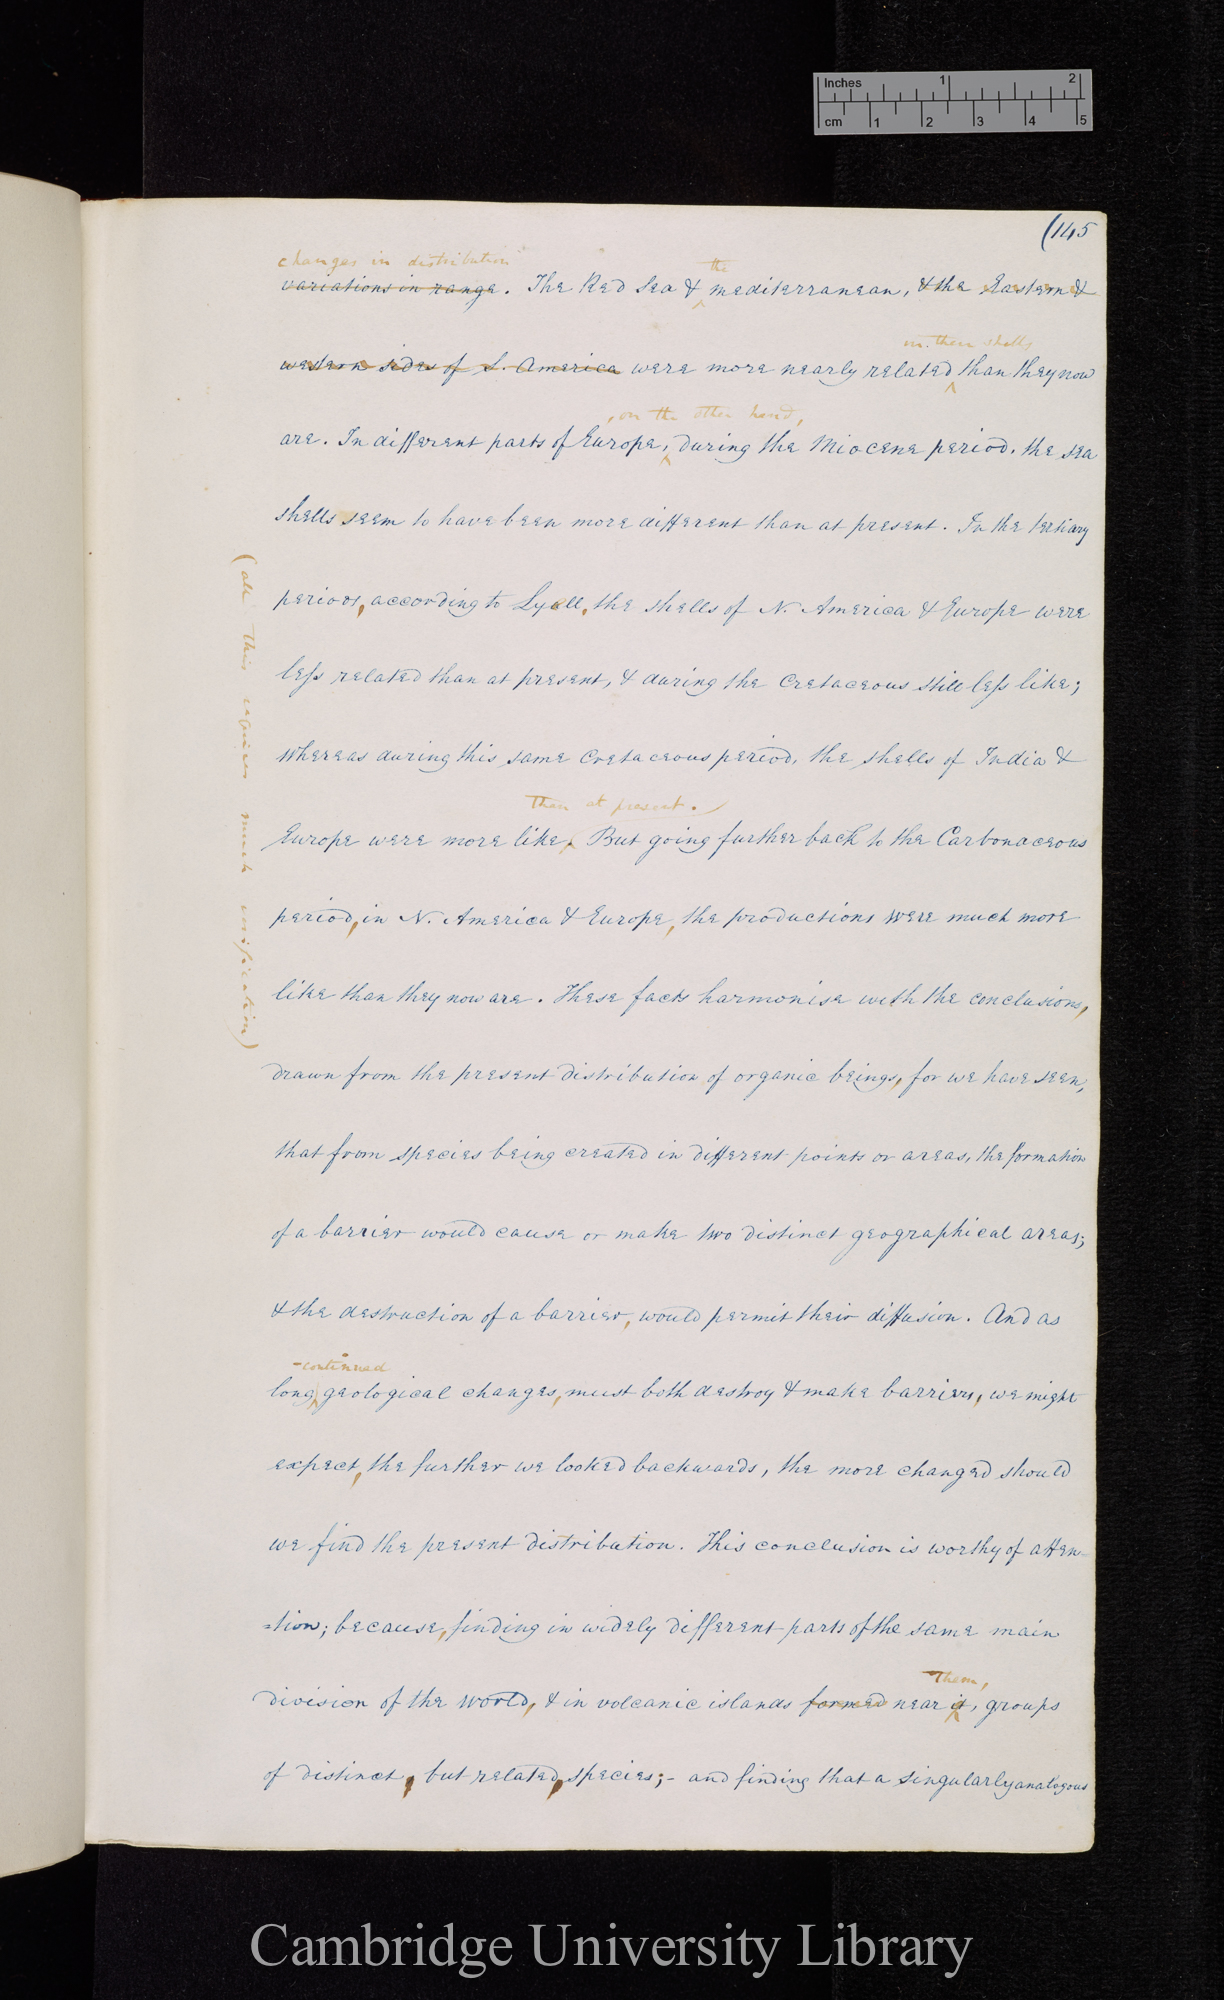 Inches 1 2
cm 1 2 3 4 5
(145
changes in distribution
variations in range. The Red Sea & the mediterranean, & the Eastern &
in their shells
western sides of S. America were more nearly related than they now
, on the other hand,
are. In different parts of Europe, during the Miocene period, the sea
shells seem to have been more different than at present. In the tertiary
periods, according to Lyell, the shells of N. America & Europe were
less related than at present, & during the Cretaceous still less like;
whereas during this same Cretaceous period, the shells of India &
than at present.
Europe were more like. But going further back to the Carbonaceous
period, in N. America & Europe, the productions were much more
like than they now are. These facts harmonise with the conclusions,
drawn from the present distribution of organic beings, for we have seen,
that from species being created in different points or areas, the formation
of a barrier would cause or make two distinct geographical areas;
& the destruction of a barrier, would permit their diffusion. And as
-continued
long geological changes, must both destroy & make barriers, we might
expect, the further we looked backwards, the more changed should
we find the present distribution. This conclusion is worthy of atten-
=tion; because, finding in widely different parts of the same main
them,
division of the world, & in volcanic islands formed near it, groups
of distinct, but related, species;- and finding that a singularly analogous
(all this requires much verification)
Cambridge University Library